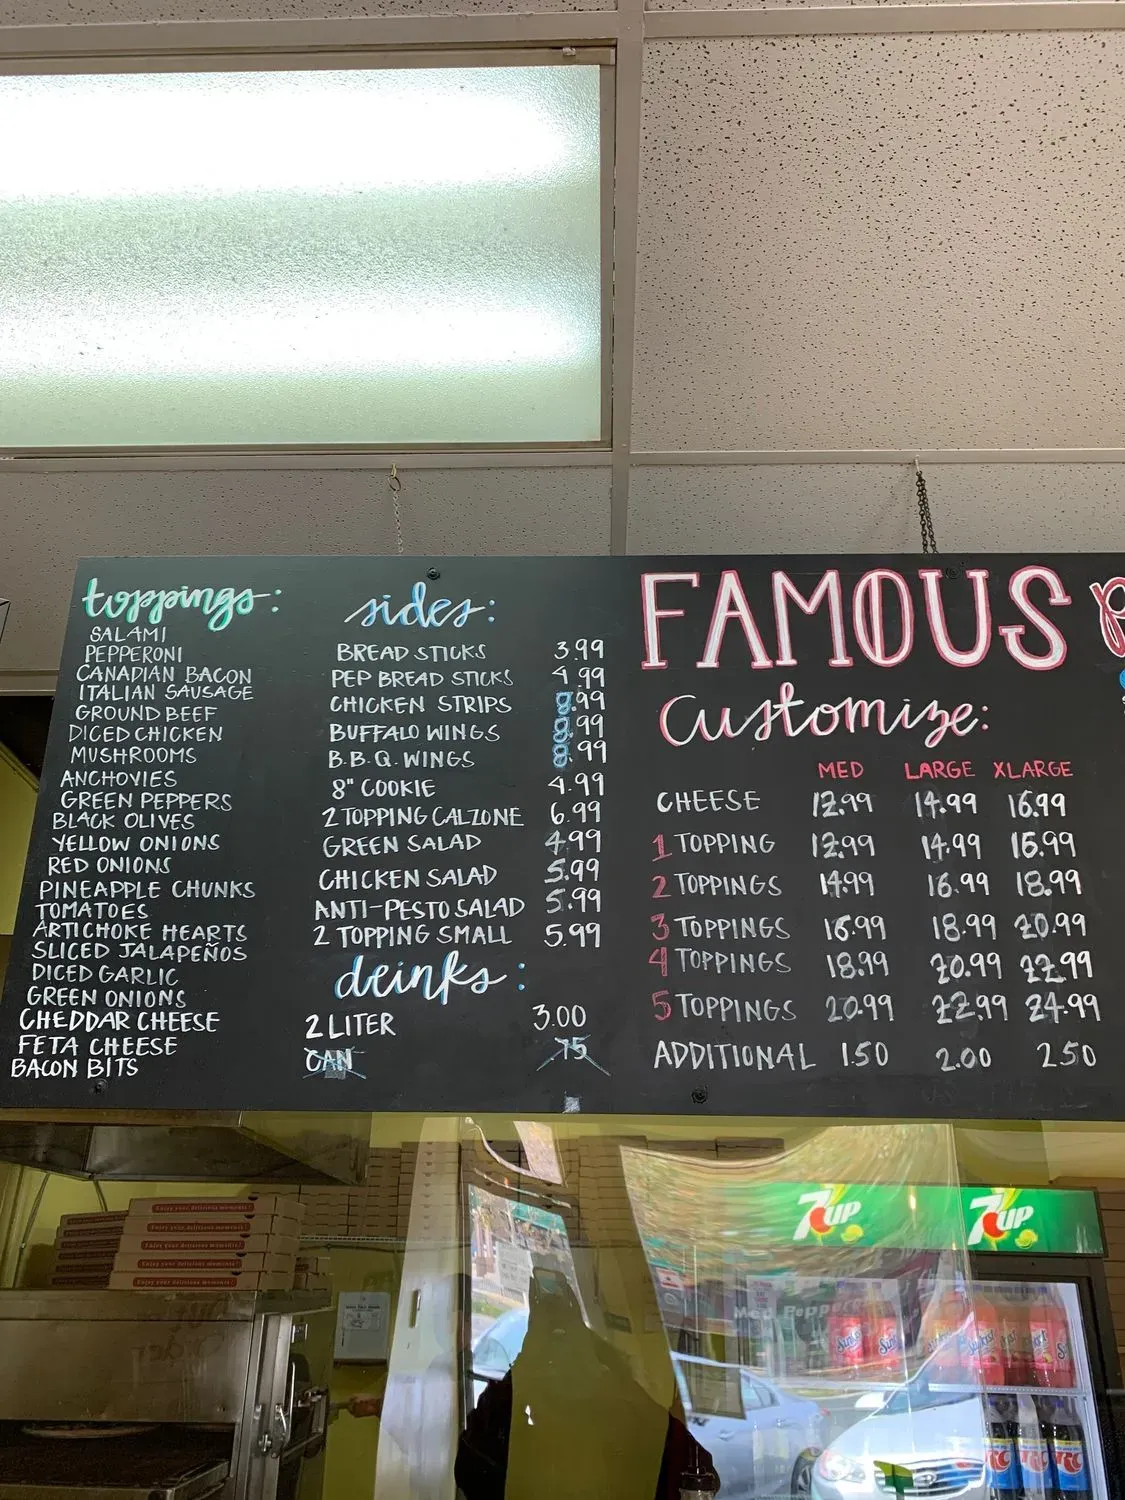 toppings:
SALAMI
PEPPERONI
CANADIAN BACON
ITALIAN SAUSAGE
GROUND BEEF
DICED CHICKEN
MUSHROOMS
ANCHOVIES
GREEN PEPPERS
BLACK OLIVES
YELLOW ONIONS
RED ONIONS
PINEAPPLE CHUNKS
TOMATOES
ARTICHOKE HEARTS
SLICED JALAPEÑOS
DICED GARLIC
GREEN ONIONS
CHEDDAR CHEESE
FETA CHEESE
BACON BITS
sides:
BREAD STICKS 3.99
PEP BREAD STICKS 4.99
CHICKEN STRIPS 8.99
BUFFALO WINGS 8.99
B.B.Q. WINGS 8.99
8" COOKIE 4.99
2 TOPPING CALZONE 6.99
GREEN SALAD 4.99
CHICKEN SALAD 5.99
ANTI-PESTO SALAD 5.99
2 TOPPING SMALL 5.99
drinks:
2 LITER 3.00
CAN 75
FAMOUS
Customize:
MED LARGE XLARGE
CHEESE 12.99 14.99 16.99
1 TOPPING 12.99 14.99 16.99
2 TOPPINGS 14.99 16.99 18.99
3 TOPPINGS 16.99 18.99 20.99
4 TOPPINGS 18.99 20.99 22.99
5 TOPPINGS 20.99 22.99 24.99
ADDITIONAL 1.50 2.00 2.50
Enjoy your delicious moments!
Enjoy your delicious moments!
Enjoy your delicious moments!
Enjoy your delicious moments!
7UP
7UP
Med Pepperoni
Sunkist
RC